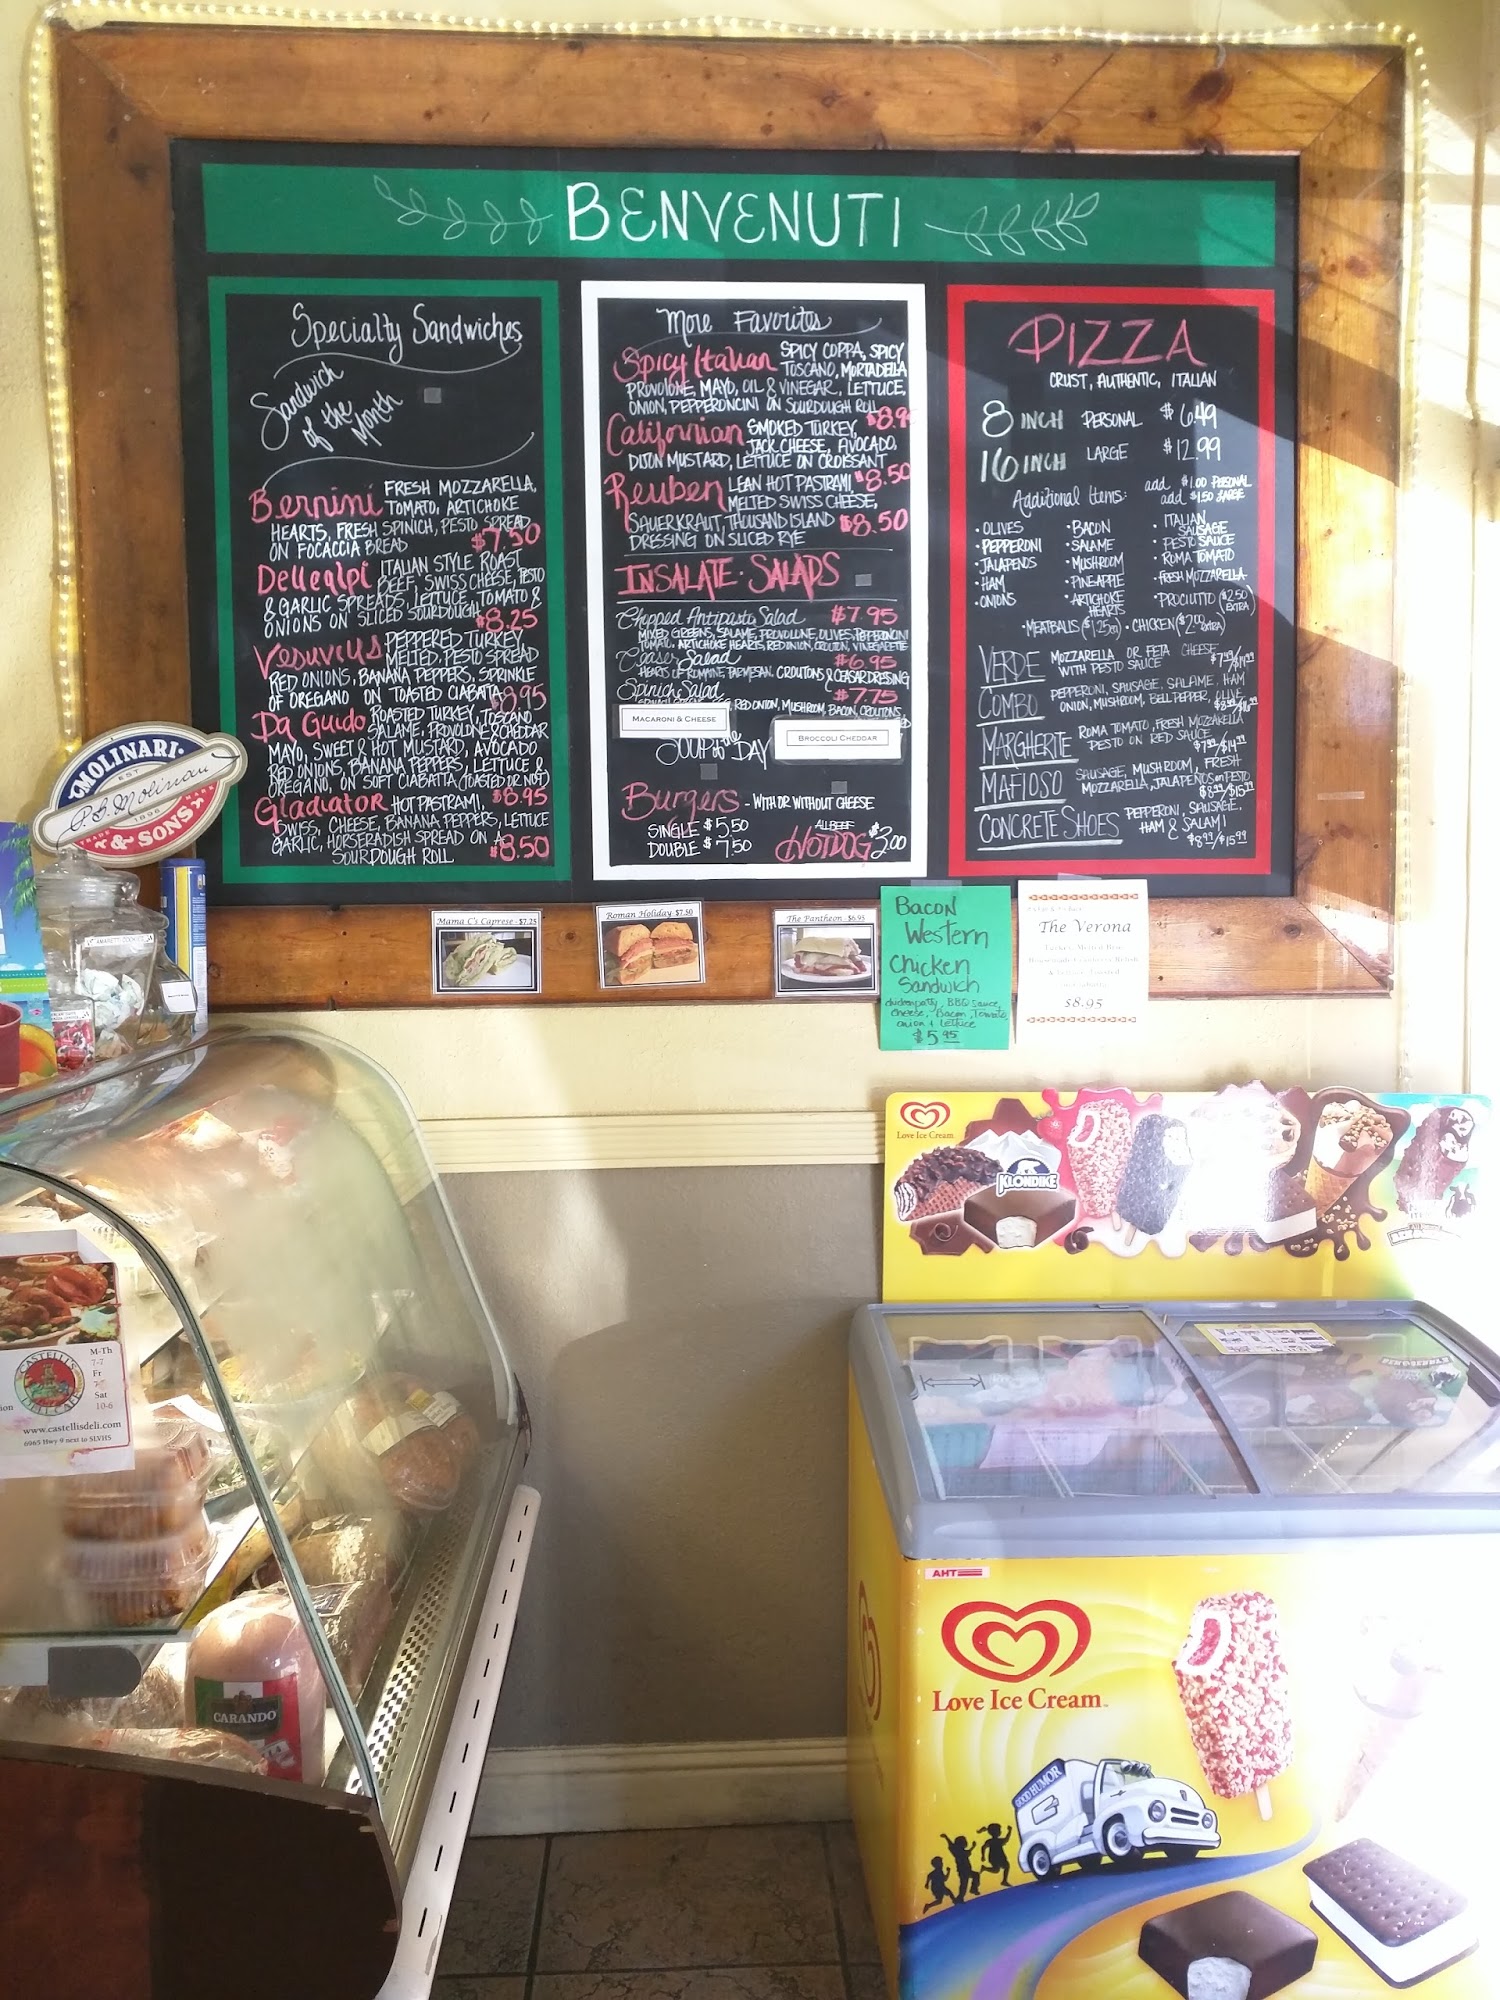 BENVENUTI
Specialty Sandwiches
Sandwich
of the
Month
Bernini FRESH MOZZARELLA,
TOMATO, ARTICHOKE
HEARTS, FRESH SPINICH, PESTO SPREAD
ON FOCACCIA BREAD $7.50
Dellealpi ITALIAN STYLE ROAST
BEEF, SWISS CHEESE, PESTO
& GARLIC SPREADS, LETTUCE, TOMATO &
ONIONS ON SLICED SOURDOUGH $8.25
Vesuvius PEPPERED TURKEY,
MELTED, PESTO SPREAD
RED ONIONS, BANANA PEPPERS, SPRINKLE
OF OREGANO ON TOASTED CIABATTA $8.95
Da Guido ROASTED TURKEY, TOSCANO
SALAME, PROVOLONE & CHEDDAR
MAYO, SWEET & HOT MUSTARD, AVOCADO
RED ONIONS, BANANA PEPPERS, LETTUCE &
OREGANO, ON SOFT CIABATTA (TOASTED OR NOT)
$8.95
Gladiator HOT PASTRAMI,
SWISS, CHEESE, BANANA PEPPERS, LETTUCE
GARLIC, HORSERADISH SPREAD ON A
SOURDOUGH ROLL $8.50
More Favorites
Spicy Italian SPICY COPPA, SPICY
TOSCANO, MORTADELLA
PROVOLONE, MAYO, OIL & VINEGAR, LETTUCE,
ONION, PEPPERONCINI ON SOURDOUGH ROLL
Californian SMOKED TURKEY,
JACK CHEESE, AVOCADO,
DIJON MUSTARD, LETTUCE ON CROISSANT
$8.50
Reuben LEAN HOT PASTRAMI
MELTED SWISS CHEESE,
SAUERKRAUT, THOUSAND ISLAND
DRESSING ON SLICED RYE $8.50
INSALATE · SALADS
Chopped Antipasto Salad $7.95
MIXED GREENS, SALAME, PROVOLONE, OLIVES, PEPPERONCINI
TOMATO, ARTICHOKE HEARTS, RED ONION, CROUTON, VINEGARETTE
Ceaser Salad $6.95
HEARTS OF ROMAINE, PARMESAN, CROUTONS & CEASAR DRESSING
Spinich Salad $7.75
RED ONION, MUSHROOM, BACON, CROUTONS
MACARONI & CHEESE
BROCCOLI CHEDDAR
SOUP of the DAY
Burgers - WITH OR WITHOUT CHEESE
SINGLE $5.50
DOUBLE $7.50
ALL BEEF
HOTDOG $3.00
PIZZA
CRUST, AUTHENTIC, ITALIAN
8 INCH PERSONAL $6.49
16 INCH LARGE $12.99
Additional Items: add $1.00 PERSONAL
add $1.50 LARGE
• OLIVES
• PEPPERONI
• JALAPENOS
• HAM
• ONIONS
• BACON
• SALAME
• MUSHROOM
• PINEAPPLE
• ARTICHOKE
HEARTS
• ITALIAN
SAUSAGE
• PESTO SAUCE
• ROMA TOMATO
• FRESH MOZZARELLA
• PROCIUTTO ($2.50
EXTRA)
• MEATBALLS ($1.25 ea) • CHICKEN ($2.00 EXTRA)
VERDE MOZZARELLA OR FETA CHEESE
WITH PESTO SAUCE
COMBO PEPPERONI, SAUSAGE, SALAME, HAM
ONION, MUSHROOM, BELL PEPPER, OLIVE
MARGHERITE ROMA TOMATO, FRESH MOZZARELLA
PESTO ON RED SAUCE $7.99/$14.99
MAFIOSO SAUSAGE, MUSHROOM, FRESH
MOZZARELLA, JALAPEÑOS on PESTO
$8.99/$15.99
CONCRETE SHOES PEPPERONI, SAUSAGE,
HAM & SALAMI
$8.99/$15.99
Mama C's Caprese - $7.25
Roman Holiday $7.50
The Pantheon - $6.95
Bacon
Western
Chicken
Sandwich
chicken patty, BBQ Sauce,
cheese, Bacon, Tomato,
onion & Lettuce
$5.95
The Verona
Turkey, Melted Brie,
$8.95
MOLINARI
EST 1896
P. G. Molinari
TRADE MARK
& SONS
AMARETTI COOKIES
CASTELLI'S
DELI CAFE
M-Th
7-7
Fr
Sat
10-6
www.castellisdeli.com
6965 Hwy 9 next to SLVHS
CARANDO
Love Ice Cream
KLONDIKE
BEN & JERRY'S
AHT
Love Ice Cream
GOOD HUMOR